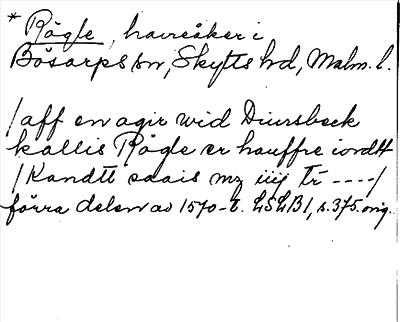 * Rögle, havreåker i
Bösarps sn, Skytts hd, Malm. l.
/ aff en agir wid Diursbeck
kallis Rögle er hauffre iordtt
/ Kandtt saais mz iiij tr ---- /
förra delen av 1570-t. LSLB 1, s. 375. orig.